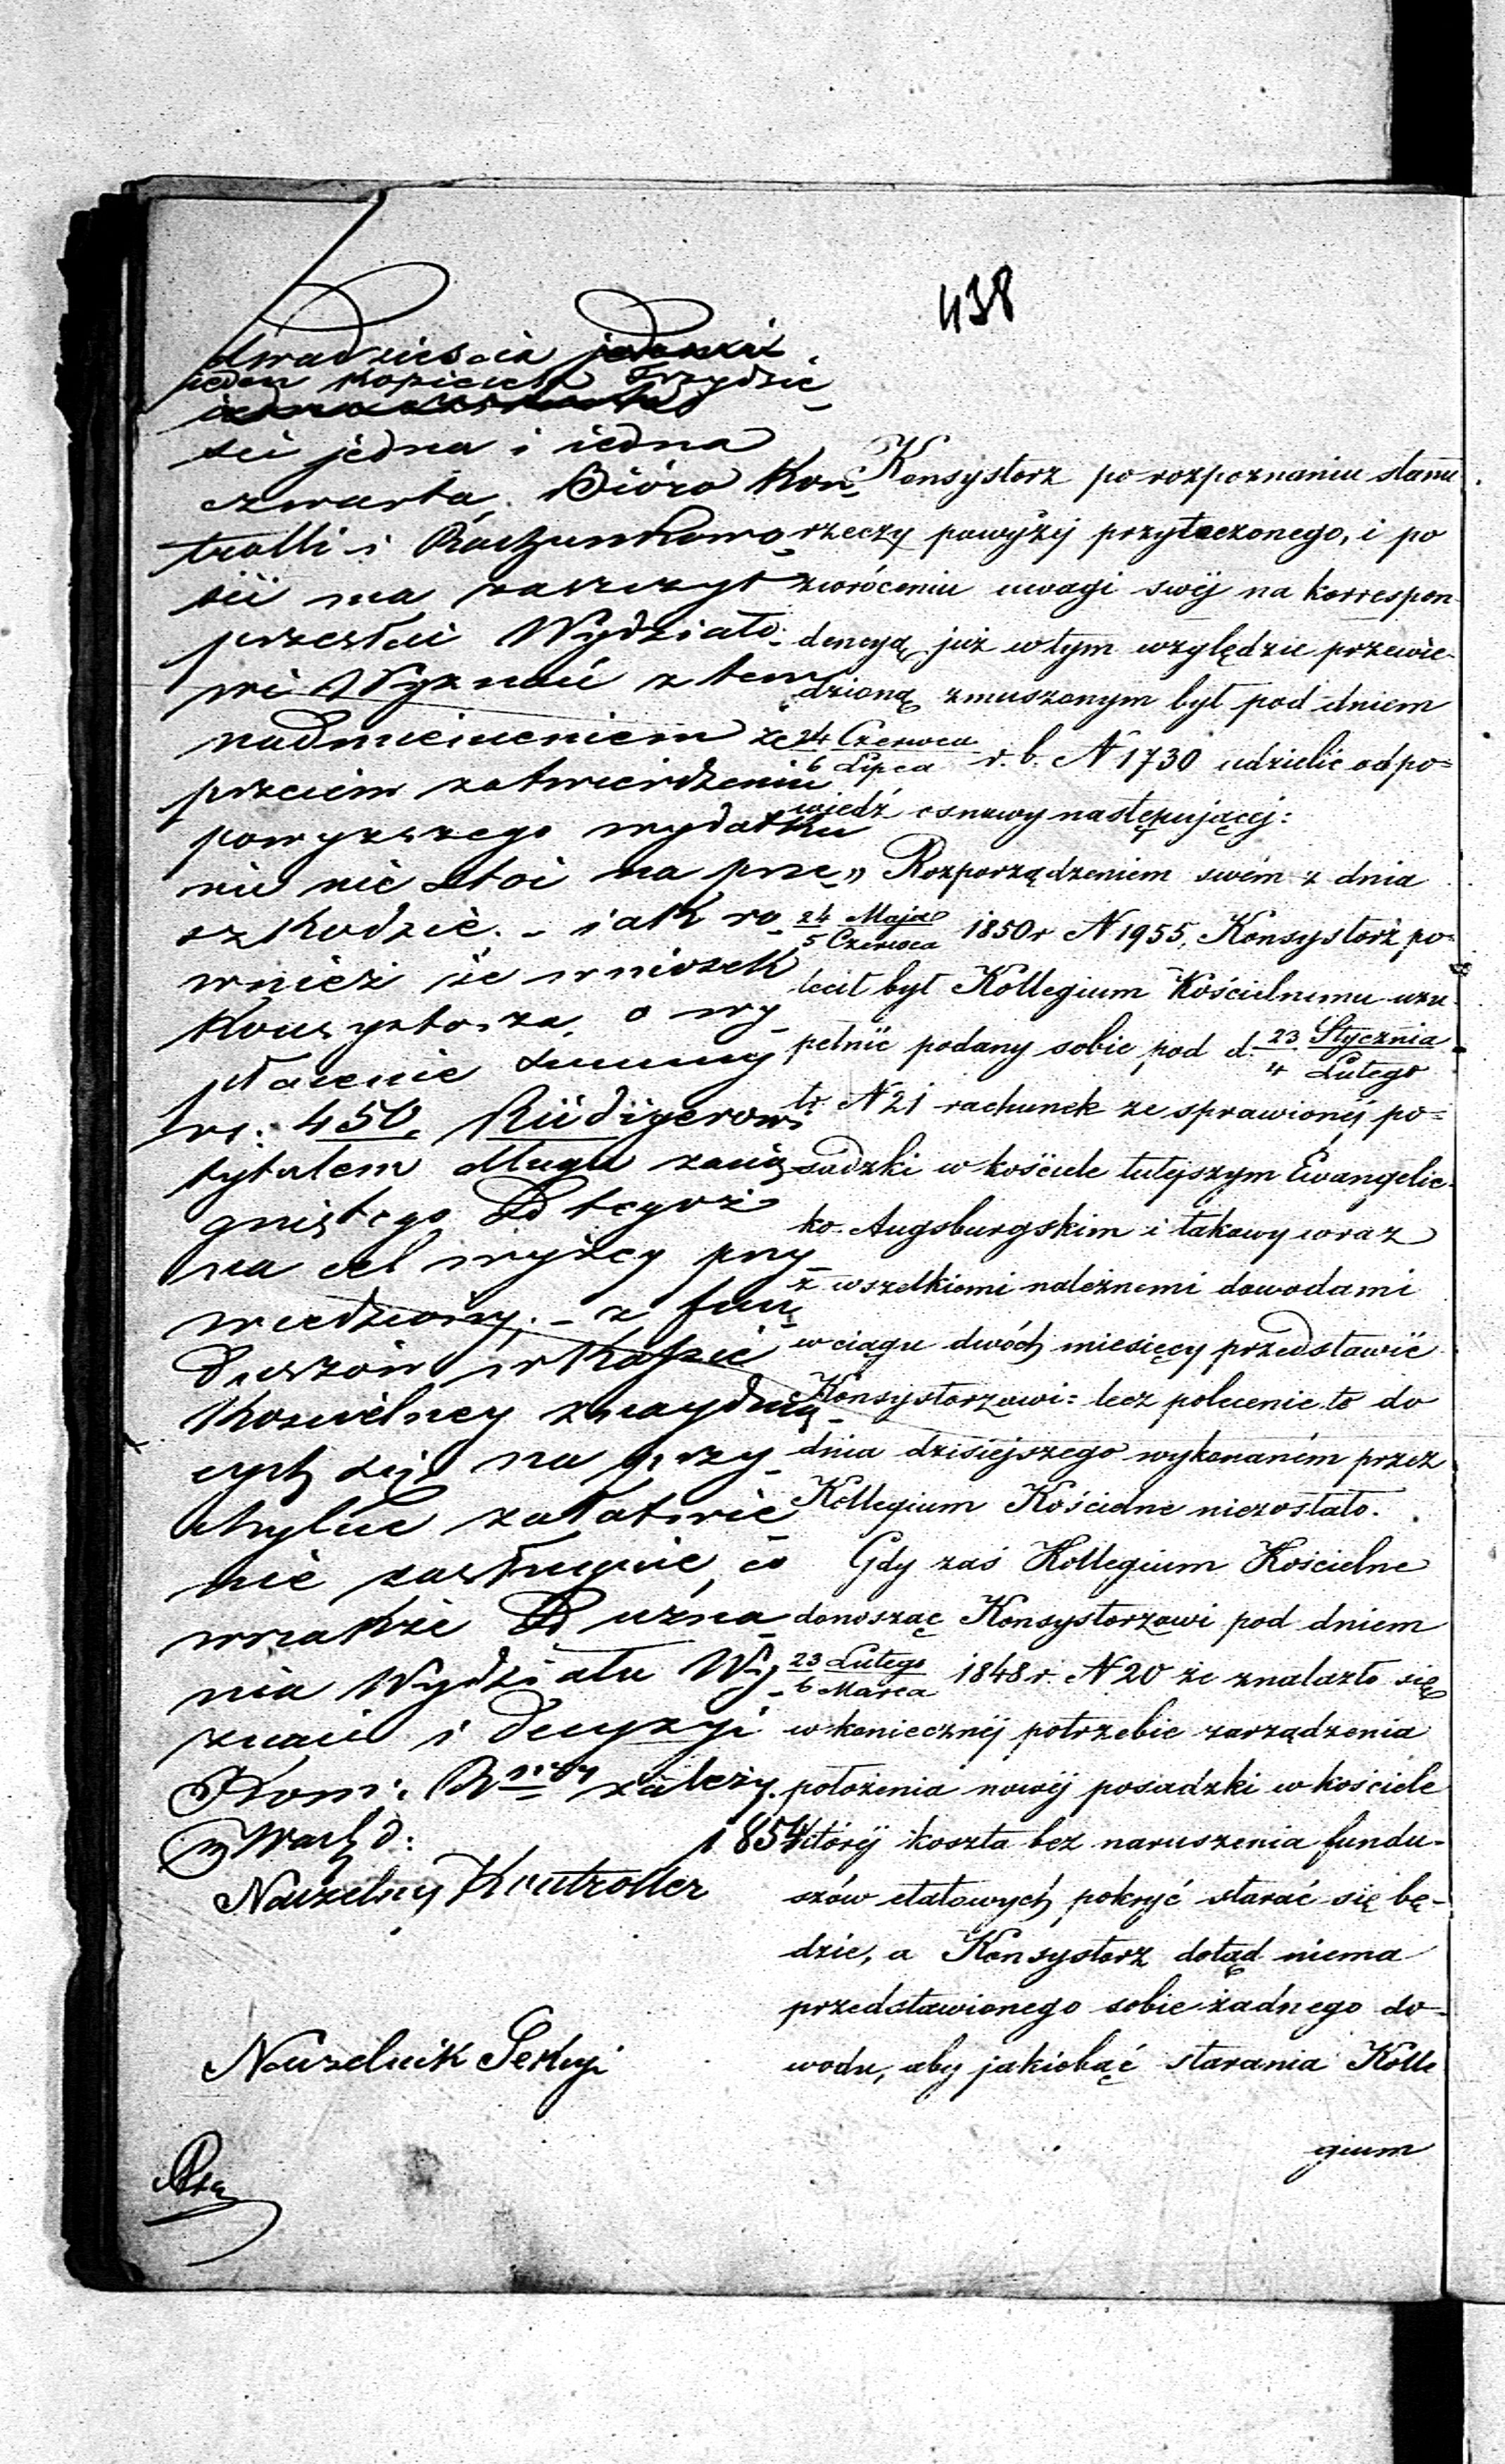 438
dwadzieścia
jeden kopiejek Trzydzie-
ści jedna i jedna
czwarta. Bióro Kon-
trolli i Rachunkowo-
ści ma zaszczyt
przesłać Wydziało-
wi Wyznań z tem
nadmienieniem że
przeciw zatwierdzeniu
powyższego wydatku
nic nie stoi na prze-
szkodzie. - iak ró-
wnież że wniosek
Konsystorza, o wy-
płacenie summy
rs: 450. Rüdigerowi
tytułem długu zacią-
gniętego od tegoż
na cel wyżey przy-
wiedziony, - z fun-
duszów w Kassie
Koscielney znaydują-
cych się, na przy-
chylne załatwie-
nie zasługuie, co
wszakże od uzna-
nia Wydziału Wy-
znań i Decyzyi
Kom: Rząd: zależy.
w Warsz d: 1854
Naczelny Kontroller
Naczelnik Sekcyi
Konsystorz po rozpoznaniu stanu
rzeczy powyżéj przytoczonego, i po
zwróceniu uwagi swéj na korrespon-
dencyą, już w tym względzie przewie-
dzioną zmuszonym był pod dniem
24 Czerwca / 6 Lipca r. b. N 1730 udzielić odpo=
wiedź osnowy następującéj:
„ Rozporządzeniem swém z dnia
24 Maja / 5 Czerwca 1850 r N 1955, Konsystorz po=
lecił był Kollegium Kościelnemu uzu-
pełnić podany sobie pod d. 23 Stycznia / 4 Lutego
t.r. N 21 rachunek ze sprawionéj po=
sadzki w kościele tutejszym Ewangelic-
ko-Augsburgskim i takowy wraz
z wszelkiemi należnemi dowodami
w ciągu dwóch miesięcy przedstawić
Konsystorzowi: lecz polecenie to do
dnia dzisiejszego wykonaném przez
Kollegium Kościelne niezostało.
Gdy zaś Kollegium Kościelne
donosząc Konsystorzowi pod dniem
23 Lutego / 6 Marca 1848 r. N 20 że znalazło się
w koniecznéj potrzebie zarządzenia
położenia nowéj posadzki w kościele
któréj koszta bez naruszenia fundu-
szów etatowych pokryć starać się bę-
dzie, a Konsystorz dotąd niema
przedstawionego sobie żadnego do-
wodu, aby jakiebąć starania Kolle
gium